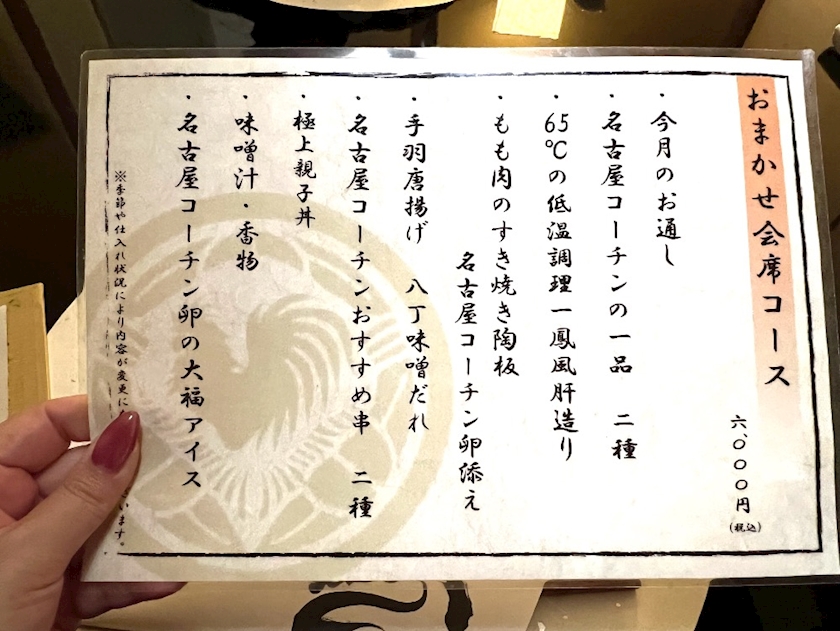 おまかせ会席コース
六、〇〇〇円
(税込)
・今月のお通し
・名古屋コーチンの一品 二種
・65℃の低温調理 一鳳風肝造り
・もも肉のすき焼き陶板
名古屋コーチン卵添え
・手羽唐揚げ 八丁味噌だれ
・名古屋コーチンおすすめ串 二種
・極上親子丼
・味噌汁・香物
・名古屋コーチン卵の大福アイス
※季節や仕入れ状況により内容が変更に
います。